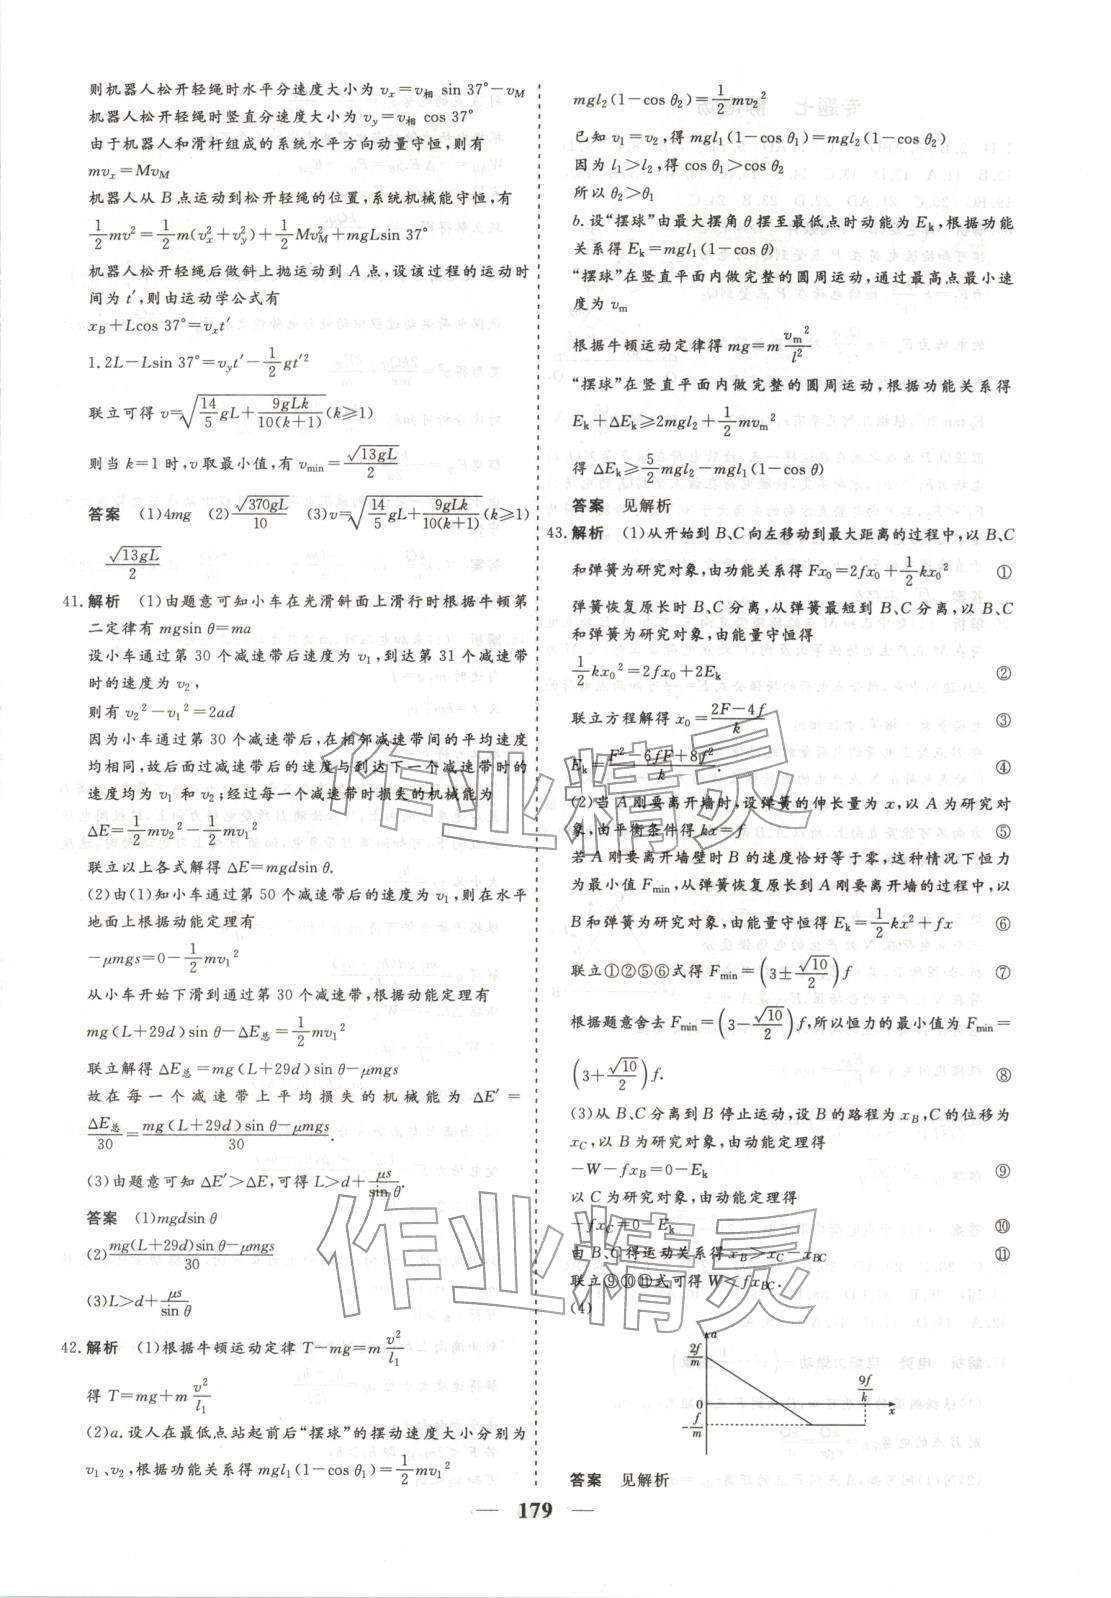 则机器人松开轻绳时水平分速度大小为 vₓ=v相 sin 37°-v_M
机器人松开轻绳时竖直分速度大小为 v_y=v相 cos 37°
由于机器人和滑杆组成的系统水平方向动量守恒,则有
mvₓ=Mv_M
机器人从 B 点运动到松开轻绳的位置,系统机械能守恒,有
1/2 mv²=1/2 m(vₓ²+v_y²)+1/2 Mv_M²+mgLsin 37°
机器人松开轻绳后做斜上抛运动到 A 点,设该过程的运动时
间为 t′,则由运动学公式有
x_B+Lcos 37°=vₓt′
1.2L-Lsin 37°=v_y t′-1/2 gt′²
联立可得 v=√(14/5 gL+9gLk/10(k+1))(k≥1)
则当 k=1 时,v 取最小值,有 v_min=√(13gL)/2
答案 (1)4mg (2)√(370gL)/10 (3)v=√(14/5 gL+9gLk/10(k+1))(k≥1)
√(13gL)/2
41. 解析 (1)由题意可知小车在光滑斜面上滑行时根据牛顿第
二定律有 mgsin θ=ma
设小车通过第 30 个减速带后速度为 v₁,到达第 31 个减速带
时的速度为 v₂,
则有 v₂²-v₁²=2ad
因为小车通过第 30 个减速带后,在相邻减速带间的平均速度
均相同,故后面过减速带后的速度与到达下一个减速带时的
速度均为 v₁ 和 v₂;经过每一个减速带时损失的机械能为
ΔE=1/2 mv₂²-1/2 mv₁²
联立以上各式解得 ΔE=mgdsin θ.
(2)由(1)知小车通过第 50 个减速带后的速度为 v₁,则在水平
地面上根据动能定理有
-μmgs=0-1/2 mv₁²
从小车开始下滑到通过第 30 个减速带,根据动能定理有
mg(L+29d)sin θ-ΔE总=1/2 mv₁²
联立解得 ΔE总=mg(L+29d)sin θ-μmgs
故在每一个减速带上平均损失的机械能为 ΔE′=
ΔE总/30=mg(L+29d)sin θ-μmgs/30.
(3)由题意可知 ΔE′>ΔE,可得 L>d+μs/sin θ.
答案 (1)mgdsin θ
(2)mg(L+29d)sin θ-μmgs/30
(3)L>d+μs/sin θ
42. 解析 (1)根据牛顿运动定律 T-mg=m v²/l₁
得 T=mg+m v²/l₁
(2)a. 设人在最低点站起前后“摆球”的摆动速度大小分别为
v₁、v₂,根据功能关系得 mgl₁(1-cos θ₁)=1/2 mv₁²
mgl₂(1-cos θ₂)=1/2 mv₂²
已知 v₁=v₂,得 mgl₁(1-cos θ₁)=mgl₂(1-cos θ₂)
因为 l₁>l₂,得 cos θ₁>cos θ₂
所以 θ₂>θ₁
b. 设“摆球”由最大摆角 θ 摆至最低点时动能为 Eₖ,根据功能
关系得 Eₖ=mgl₁(1-cos θ)
“摆球”在竖直平面内做完整的圆周运动,通过最高点最小速
度为 vₘ
根据牛顿运动定律得 mg=m vₘ²/l²
“摆球”在竖直平面内做完整的圆周运动,根据功能关系得
Eₖ+ΔEₖ≥2mgl₂+1/2 mvₘ²
得 ΔEₖ≥5/2 mgl₂-mgl₁(1-cos θ)
答案 见解析
43. 解析 (1)从开始到 B、C 向左移动到最大距离的过程中,以 B、C
和弹簧为研究对象,由功能关系得 Fx₀=2fx₀+1/2 kx₀² ①
弹簧恢复原长时 B、C 分离,从弹簧最短到 B、C 分离,以 B、C
和弹簧为研究对象,由能量守恒得
1/2 kx₀²=2fx₀+2Eₖ ②
联立方程解得 x₀=2F-4f/k ③
Eₖ=F²-6fF+8f²/k. ④
(2)当 A 刚要离开墙时,设弹簧的伸长量为 x,以 A 为研究对
象,由平衡条件得 kx=f ⑤
若 A 刚要离开墙壁时 B 的速度恰好等于零,这种情况下恒力
为最小值 F_min,从弹簧恢复原长到 A 刚要离开墙的过程中,以
B 和弹簧为研究对象,由能量守恒得 Eₖ=1/2 kx²+fx ⑥
联立①②⑤⑥式得 F_min=(3±√10/2)f ⑦
根据题意舍去 F_min=(3-√10/2)f,所以恒力的最小值为 F_min=
(3+√10/2)f. ⑧
(3)从 B、C 分离到 B 停止运动,设 B 的路程为 x_B,C 的位移为
x_C,以 B 为研究对象,由动能定理得
-W-fx_B=0-Eₖ ⑨
以 C 为研究对象,由动能定理得
-fx_C=0-Eₖ ⑩
由 B、C 得运动关系得 x_B>x_C-x_BC ⑪
联立⑨⑩⑪式可得 W<fx_BC.
(4)
a
2f/m
0
-f/m
9f/k
x
答案 见解析
179
作业精灵
作业精灵